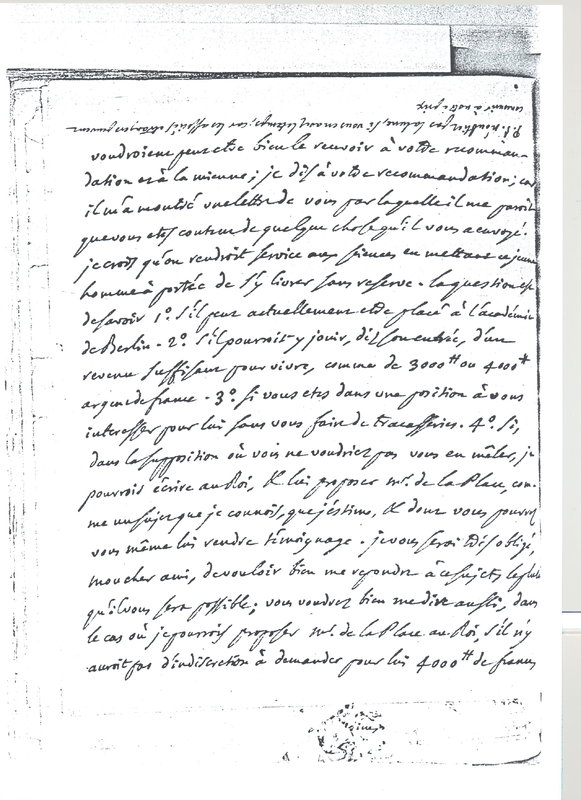 voudroient peut etre bien le recevoir à votre recomman-
dation et à la mienne; je dis à votre recommandation; car
il m'a montré une lettre de vous par laquelle il me paroit
que vous etes content de quelque chose qu'il vous a envoyé.
je crois qu'on rendroit service aux sciences en mettant ce jeune
homme à portée de s'y livrer sans reserve. la question est
de savoir 1°. s'il peut actuellement etre placé à l'académie
de Berlin. 2°. s'il pourroit y jouir, dès son entrée, d'un
revenu suffisant pour vivre, comme de 3000 ₶ ou 4000 ₶
argent de france. 3°. si vous etes dans une position à vous
interesser pour lui sans vous faire de tracasseries. 4°. si,
dans la supposition où vous ne voudriez pas vous en mêler, je
pourrois écrire au Roi, & lui proposer mr. de la Place, com-
me un sujet que je connois, que j'estime, & dont vous pourrez
vous même lui rendre témoignage. je vous serai très obligé,
mon cher ami, de vouloir bien me repondre à ce sujet le plutôt
qu'il vous sera possible; vous voudrez bien me dire aussi, dans
le cas où je pourrois proposer mr. de la Place au Roi, s'il n'y
auroit pas d'indiscretion à demander pour lui 4000 ₶ de france